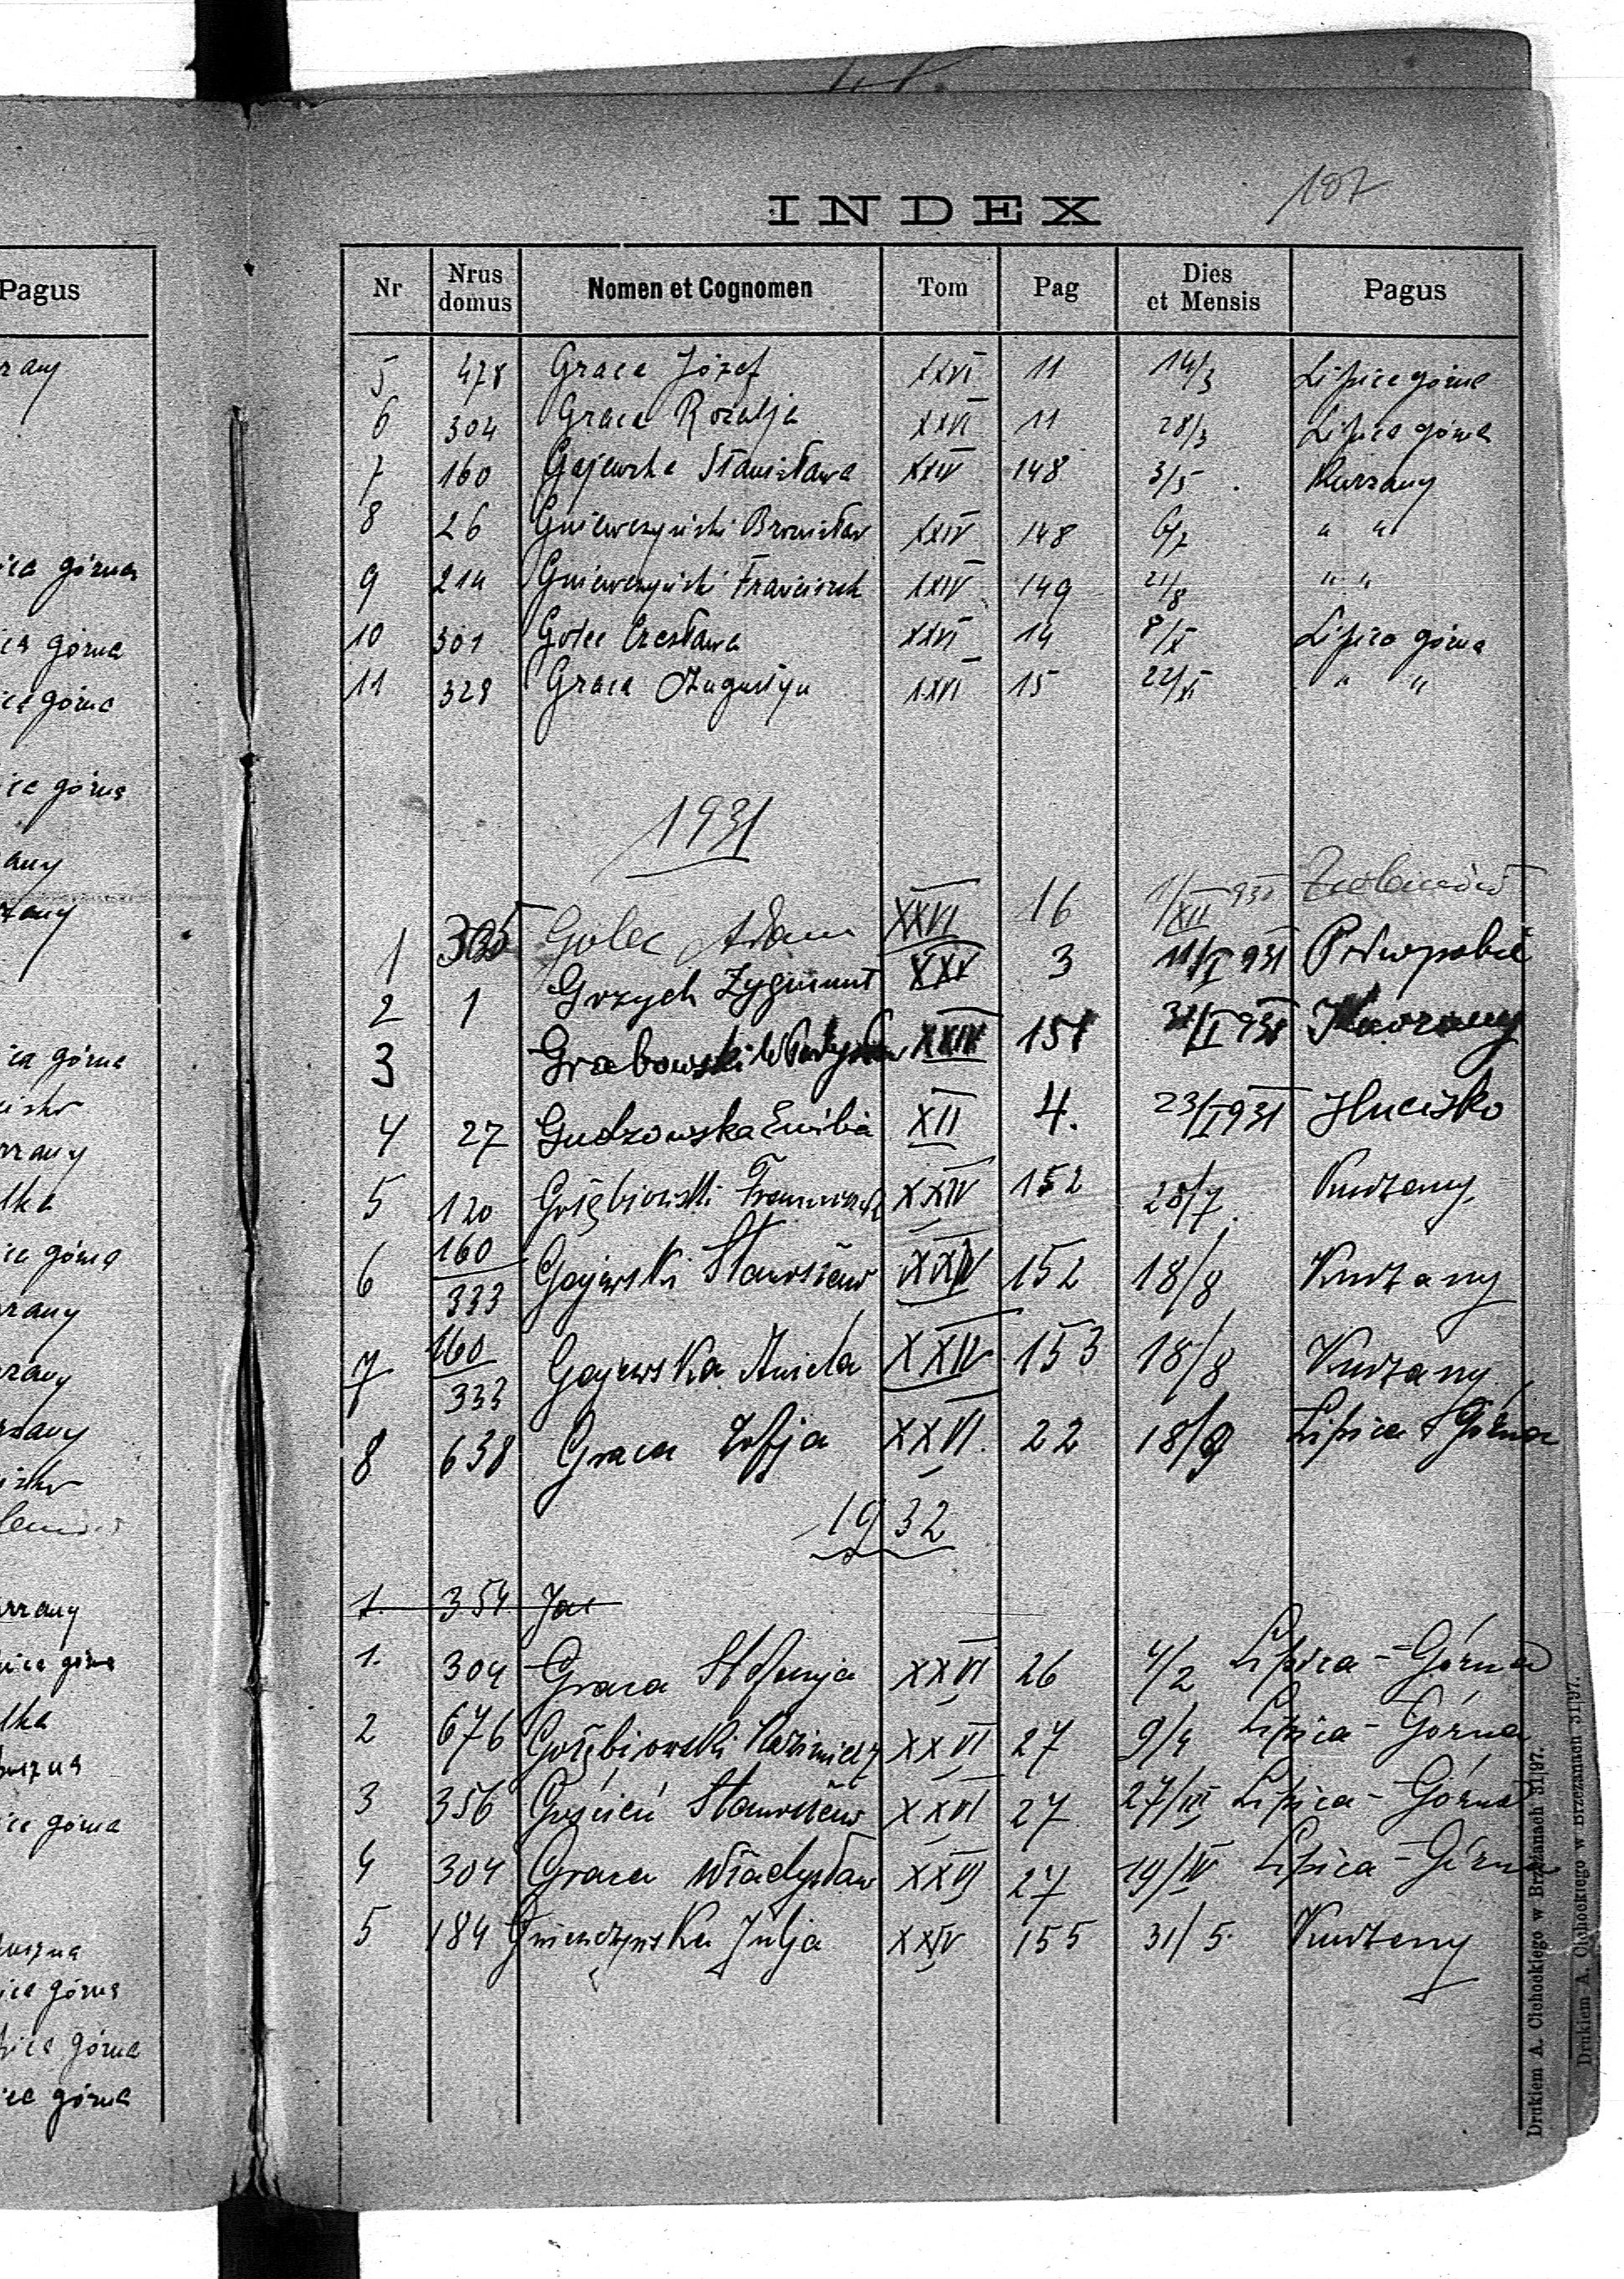 107
INDEX
Nr Nrus domus Nomen et Cognomen Tom Pag Dies et Mensis Pagus
5 478 Graca Józef XXVI 11 14/3 Lipica górna
6 304 Graca Rozalja XXVI 11 28/3 Lipica górna
7 160 Gajewska Stanisława XXIV 148 3/5 Kurzany
8 26 Gniewczyński Bronisław XXIV 148 6/7 " "
9 214 Gniewczyński Franciszek XXIV 149 21/8 " "
10 301 Golec Czesława XXVI 14 8/X Lipica górna
11 328 Graca XXVI 15 22/XI " "
1931
1 305 Golec Adam XXVI 16 1/XII 930
2 1 Grzych Zygmunt XXV 3 11/I 931
3 Grabowski Władysław XXIV 151 Kurzany
4 27 Gudzowska Emilia XII 4. 23/I 931 Hucisko
5 120 Gołębiowski Franciszek XXIV 152 28/7. Kurzany
6 160/333 Gajewski Stanisław XXIV 152 18/8 Kurzany
7 160/333 Gajewska Aniela XXIV 153 18/8 Kurzany
8 638 Graca Zofja XXVI. 22 18/9 Lipica Górna
1932
1. 354. Jac
1. 304 Graca Stefanja XXVI 26 4/2 Lipica-Górna
2 676 Gołębiowski Kazimierz XXVI 27 9/4 Lipica-Górna
3 356 Goścień Stanisław XXVI 27 27/III Lipica-Górna
4 304 Graca Władysław XXVI 27 19/IV Lipica-Górna
5 184 Gniewczyńska Julja XXIV 155 31/5. Kurzany
Drukiem A. Cichockiego w Brzeżanach 31|97.
Drukiem A. Cichockiego w Brzeżanach 31|97.
Pagus
górna
górna
górna
górna
górna
górna
górna
górna
górna
górna
górna
górna